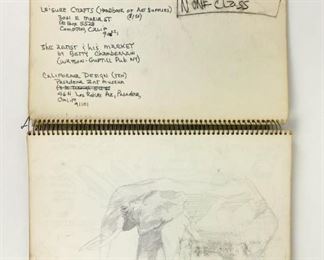 LEISURE CRAFTS (HANDBOOK OF ART SUPPLIES)
3061 E MARIA ST ($1.50)
PO BOX 5528
COMPTON, CALIF
THE ARTIST & HIS MARKET
BY BETTY CHAMBERLAIN
(WATSON-GUPTILL PUB NY)
CALIFORNIA DESIGN (TEN)
PASADENA ART MUSEUM
46 N LOS ROBLES AVE, PASADENA,
CALIF
91101
NONE CLASS